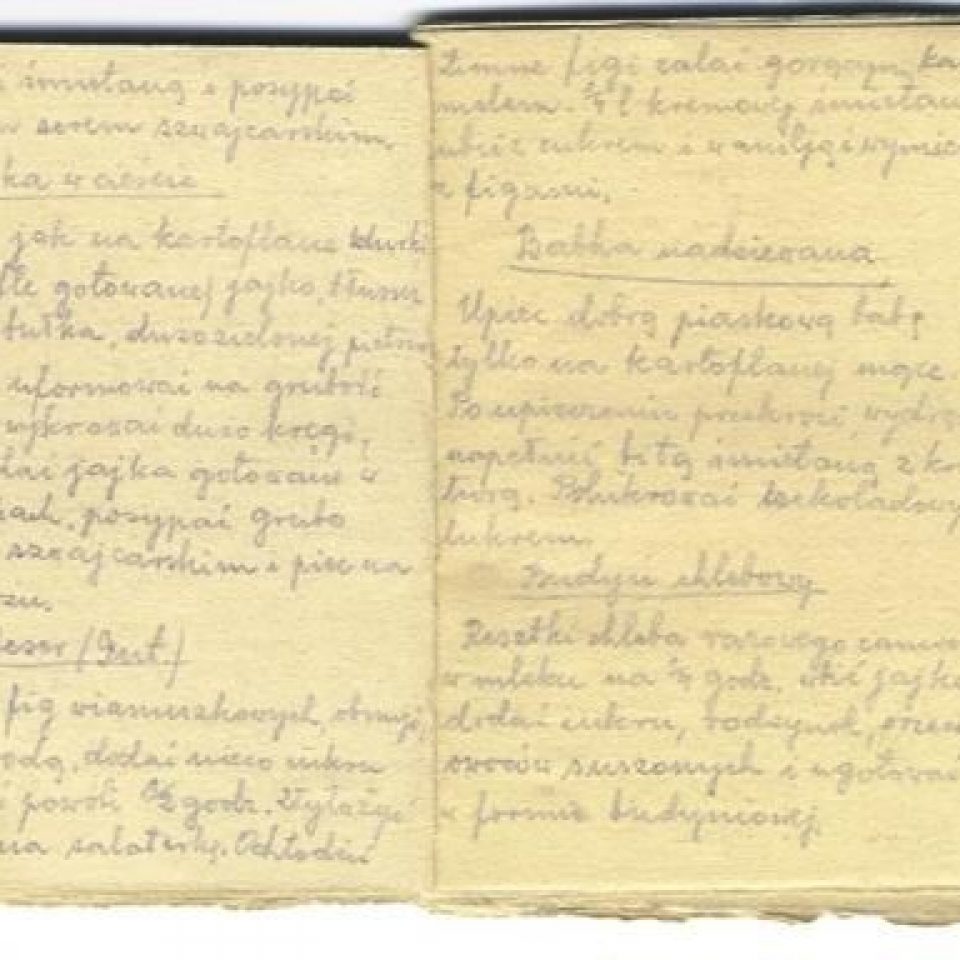 śmietaną i posypać
serem szwajcarskim
ka w cieście
jak na kartoflane kluski
gotowanej jajko, tłuszcz
bułka, dużo zielonej pietrus
uformować na grubość
wykrawać dużo kręgi,
jajka gotowane w
iach, posypać grubo
szwajcarskim i piec na
Deser (Gert.)
fig wianuszkowych, obmyć,
wodą, dodać nieco cukru
powoli 1/2 godz. Wyłożyć
na salaterkę. Ochłodzić
Zimne figi zalać gorącym ka
melem. 1/4 l kremowej śmietan
ubić z cukrem i wanilją i wymie
z figami.
Babka nadziewana
Upiec dobrą piaskową babę
tylko na kartoflanej mące.
Po upieczeniu przekroić, wydrą
napełnić bitą śmietaną z kon
turą. Polukrować czekoladowy
lukrem.
Budyń chlebowy
Resztki chleba razowego zamo
w mleku na 1/4 godz. wbić jajko
dodać cukru, rodzynek, orzech
owoców suszonych i ugotować
w formie budyniowej